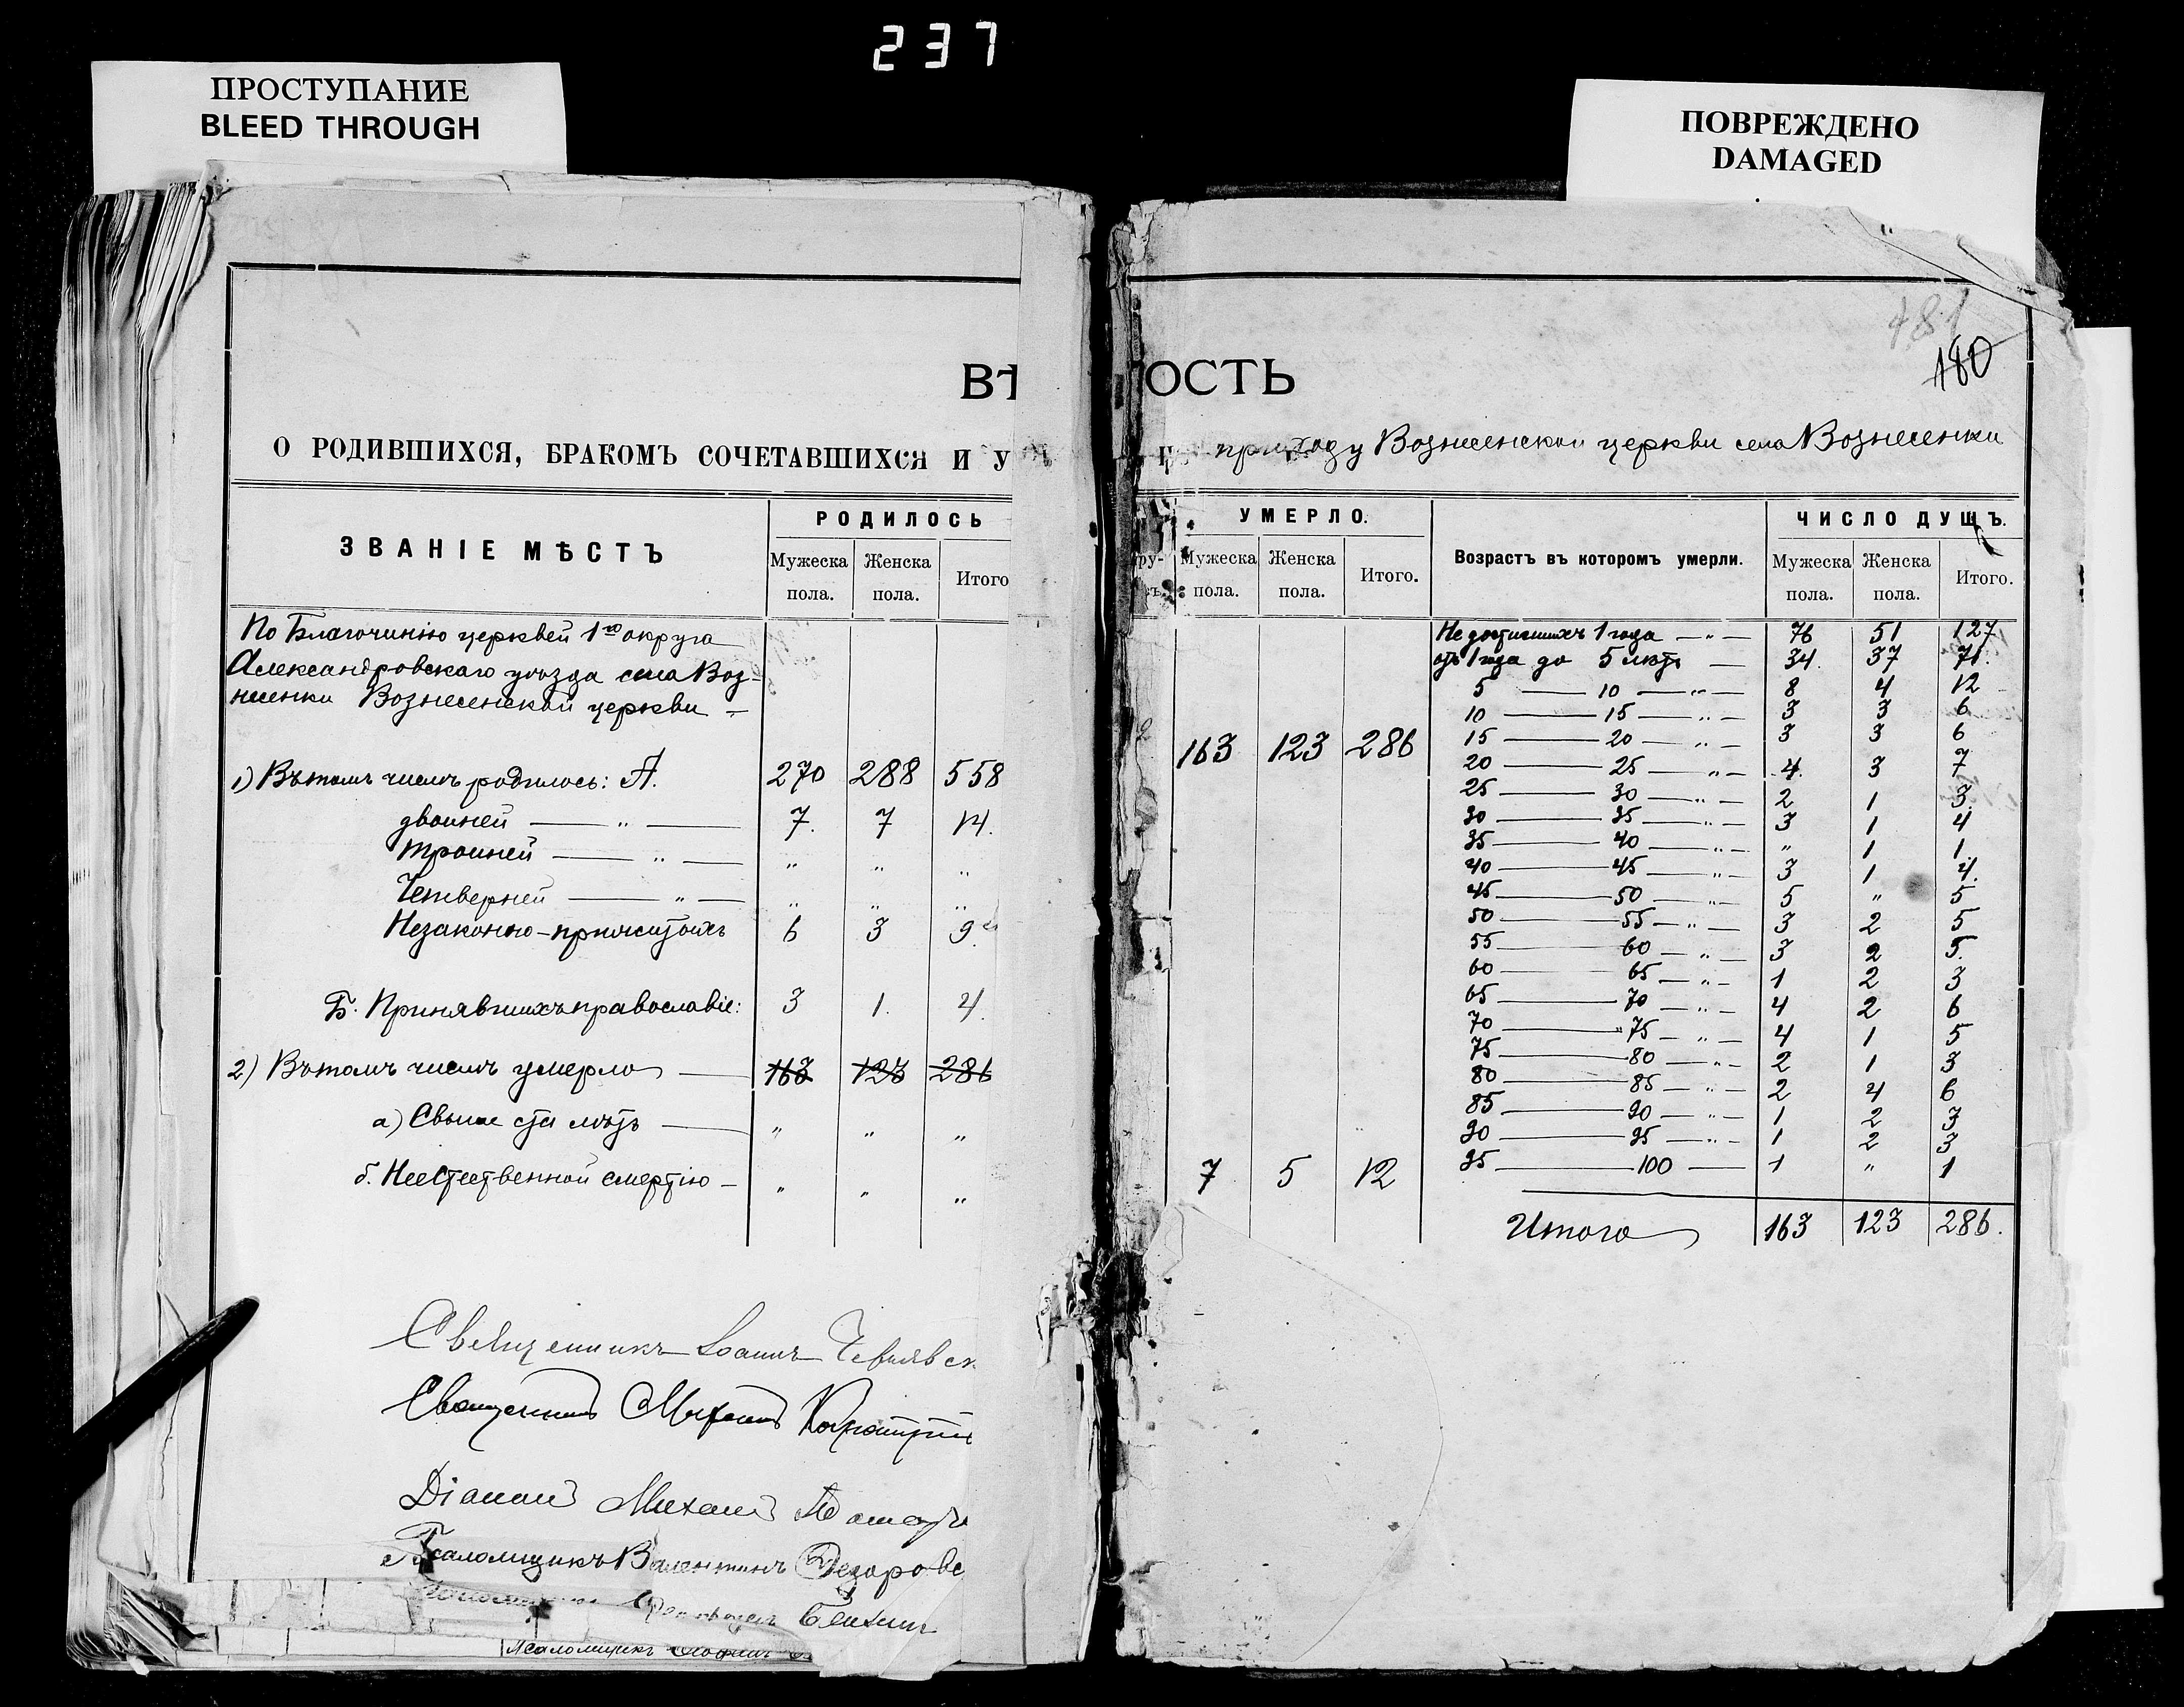 237
ПРОСТУПАНИЕ
BLEED THROUGH
ПОВРЕЖДЕНО
DAMAGED
481
180
ВѢ
ОСТЬ
О РОДИВШИХСЯ, БРАКОМЪ СОЧЕТАВШИХСЯ И У
приходу Вознесенской церкви села Вознесенки
ЗВАНІЕ МѢСТЪ
РОДИЛОСЬ
Мужеска пола.
Женска пола.
Итого
По Благочинію церквей 1го округа
Александровскаго уѣзда села Воз-
несенки Вознесенской церкви –
1) Въ томъ числѣ родилось: А. 270 288 558
двойней — „ — 7. 7 14.
Тройней — „ — „ „ „
Четверней — „ — „ „ „
Незаконно-прижитыхъ 6 3 9
Б. Принявшихъ православіе: 3 1. 4.
2) Въ томъ числѣ умерло — 163 123 286
а) Свыше ста лѣтъ — „ „ „
б. Неестественной смертію – „ „ „
Священникъ Іоаннъ
Священникъ Михаилъ
Діаконъ Михаилъ
Псаломщикъ Валентинъ
Псаломщикъ
УМЕРЛО.
Мужеска пола.
Женска пола.
Итого.
163 123 286
7 5 12
Возрастъ въ которомъ умерли.
ЧИСЛО ДУШЪ.
Мужеска пола.
Женска пола.
Итого.
Не достигшихъ 1 года — „ — 76 51 127
отъ 1 года до 5 лѣтъ — 34. 37 71.
5 — 10 — „ — 8 4 12
10 — 15 — „ — 3 3 6
15 — 20 — „ — 3 3 6
20 — 25 — „ — 4. 3 7
25 — 30 — „ — 2 1 3.
30 — 35 — „ — 3 1 4
35 — 40 — „ — „ 1 1
40 — 45 — „ — 3 1 4.
45 — 50 — „ — 5 „ 5
50 — 55 — „ — 3 2 5
55 — 60 — „ — 3 2 5.
60 — 65 — „ — 1 2 3
65 — 70 — „ — 4 2 6
70 — 75 — „ — 4 1 5
75 — 80 — „ — 2 1 3
80 — 85 — „ — 2 4 6
85 — 90 — „ — 1 2 3
90 — 95 — „ — 1 2 3
95 — 100 — 1 „ 1
Итого 163 123 286.